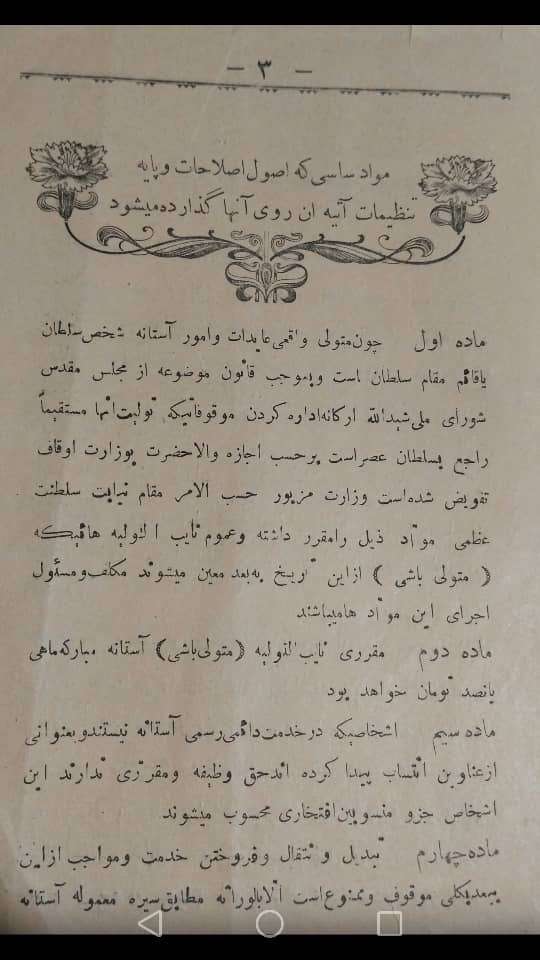 — ۳ —
مواد ساسی که اصول اصلاحات و پایه
تنظیمات آتیه ان روی آنها گذارده میشود
ماده اول چون متولی واقعی عایدات وامور آستانه شخص سلطان
یا قائم مقام سلطان است وبموجب قانون موضوعه از مجلس مقدس
شورای ملی شیدالله ارکانه اداره کردن موقوفاتیکه تولیت انها مستقیماً
راجع بسلطان عصراست برحسب اجازه والاحضرت بوزارت اوقاف
تفویض شده‌است وزارت مزبور حسب الامر مقام نیابت سلطنت
عظمی مواد ذیل رامقرر داشته وعموم نایب التولیه هائیکه
( متولی باشی ) ازاین تاریخ به‌بعد معین میشوند مکلف ومسئول
اجرای این مواد هامیباشند
ماده دوم مقرری نایب‌التولیه (متولی‌باشی) آستانه مبارکه‌ماهی
پانصد تومان خواهد بود
ماده سیم اشخاصیکه درخدمت‌دائمی‌رسمی آستانه نیستندوبعنوانی
ازعناوین انتساب پیدا کرده اندحق وظیفه ومقرری ندارند این
اشخاص جزو منسوبین‌افتخاری محسوب میشوند
ماده‌چهارم تبدیل و نتقال وفروختن خدمت ومواجب ازاین
ببعدبکلی موقوف وممنوع‌است الابالوراثه مطابق‌سیره معموله آستانه